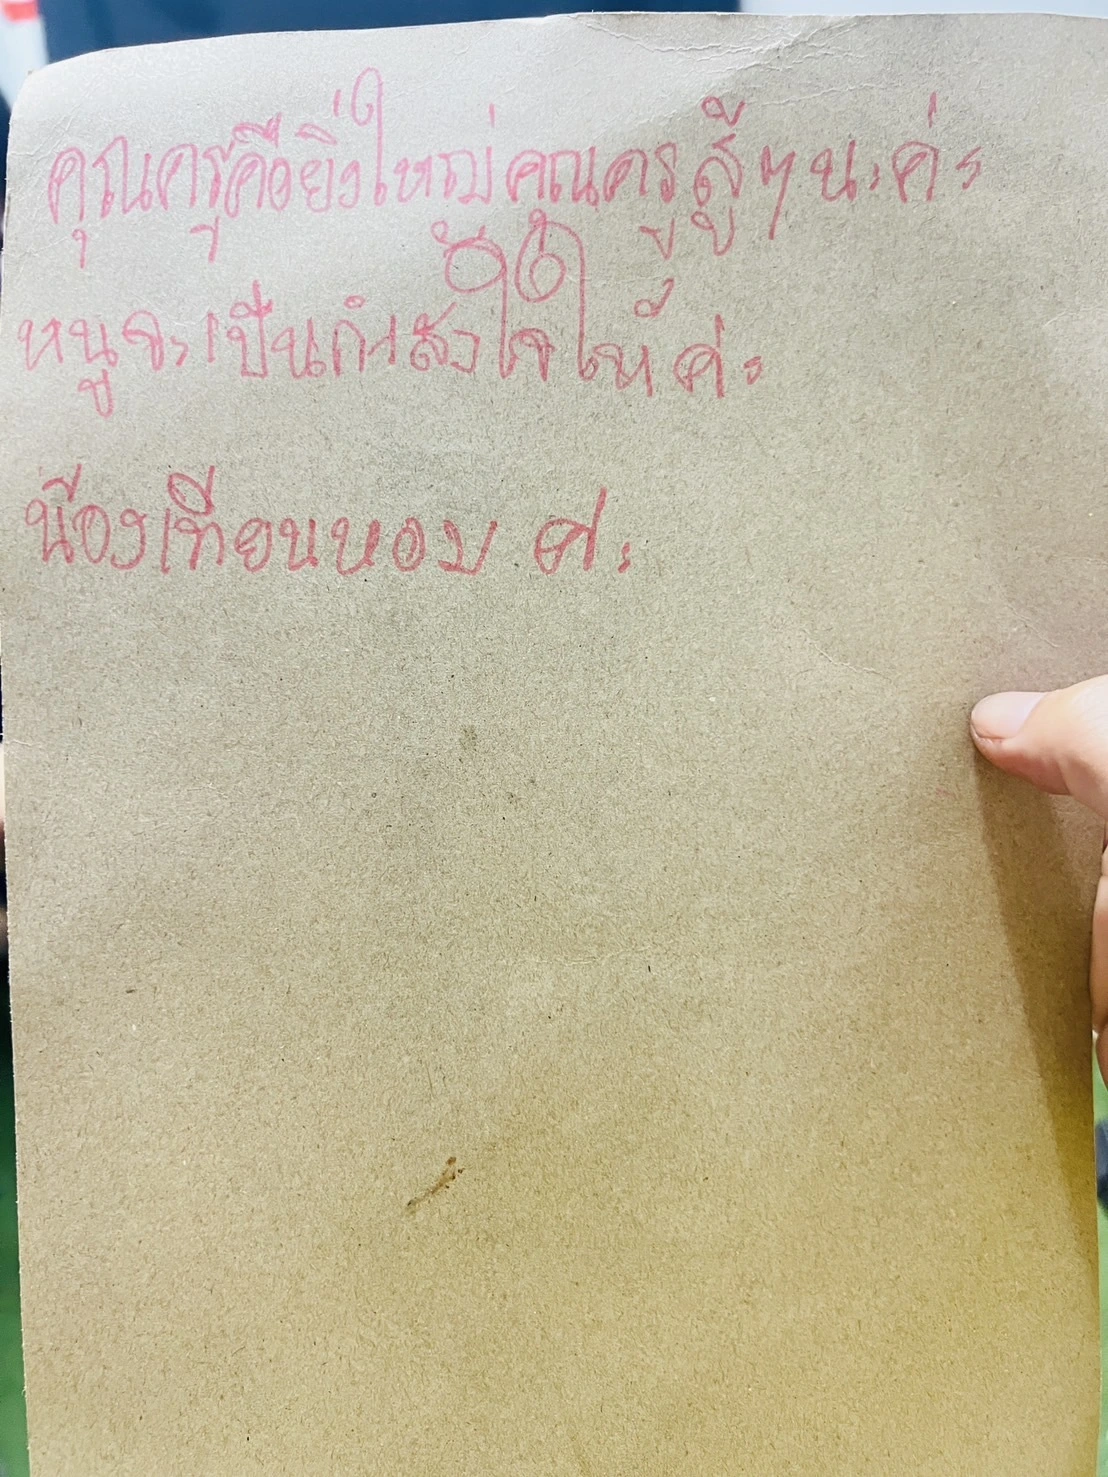 คุณครูคือยิ่งใหญ่คุณครูสู้ๆนะค่ะ
หนูจะเป็นกำลังใจให้ค่ะ
น้องเทียนหอม ค่ะ